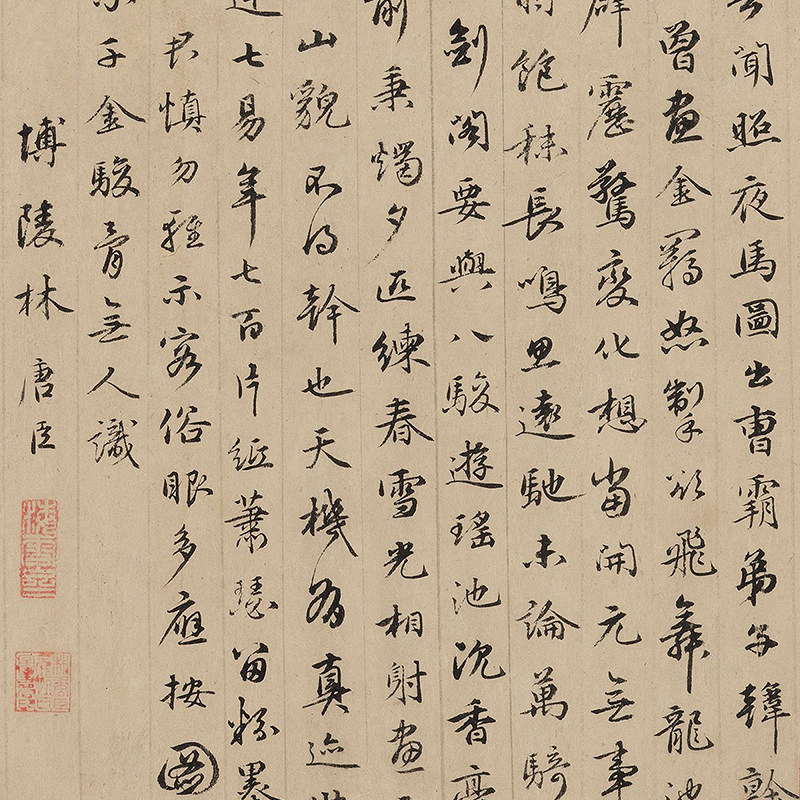 聞照夜馬圖出曹霸弟子韓幹
曾畫金羈怒掣欲飛舞龍池
霹靂驚變化想當開元無事
飽秣長鳴思遠馳未論萬騎
劍閣要與八駿遊瑤池沉香亭
前秉燭夕匹練春雪光相射畫
山貌不得幹也天機為真迹
七易年七百片紙蕭瑟留粉墨
君慎勿輕示客俗眼多應按圖
千金駿骨無人識
博陵林唐臣